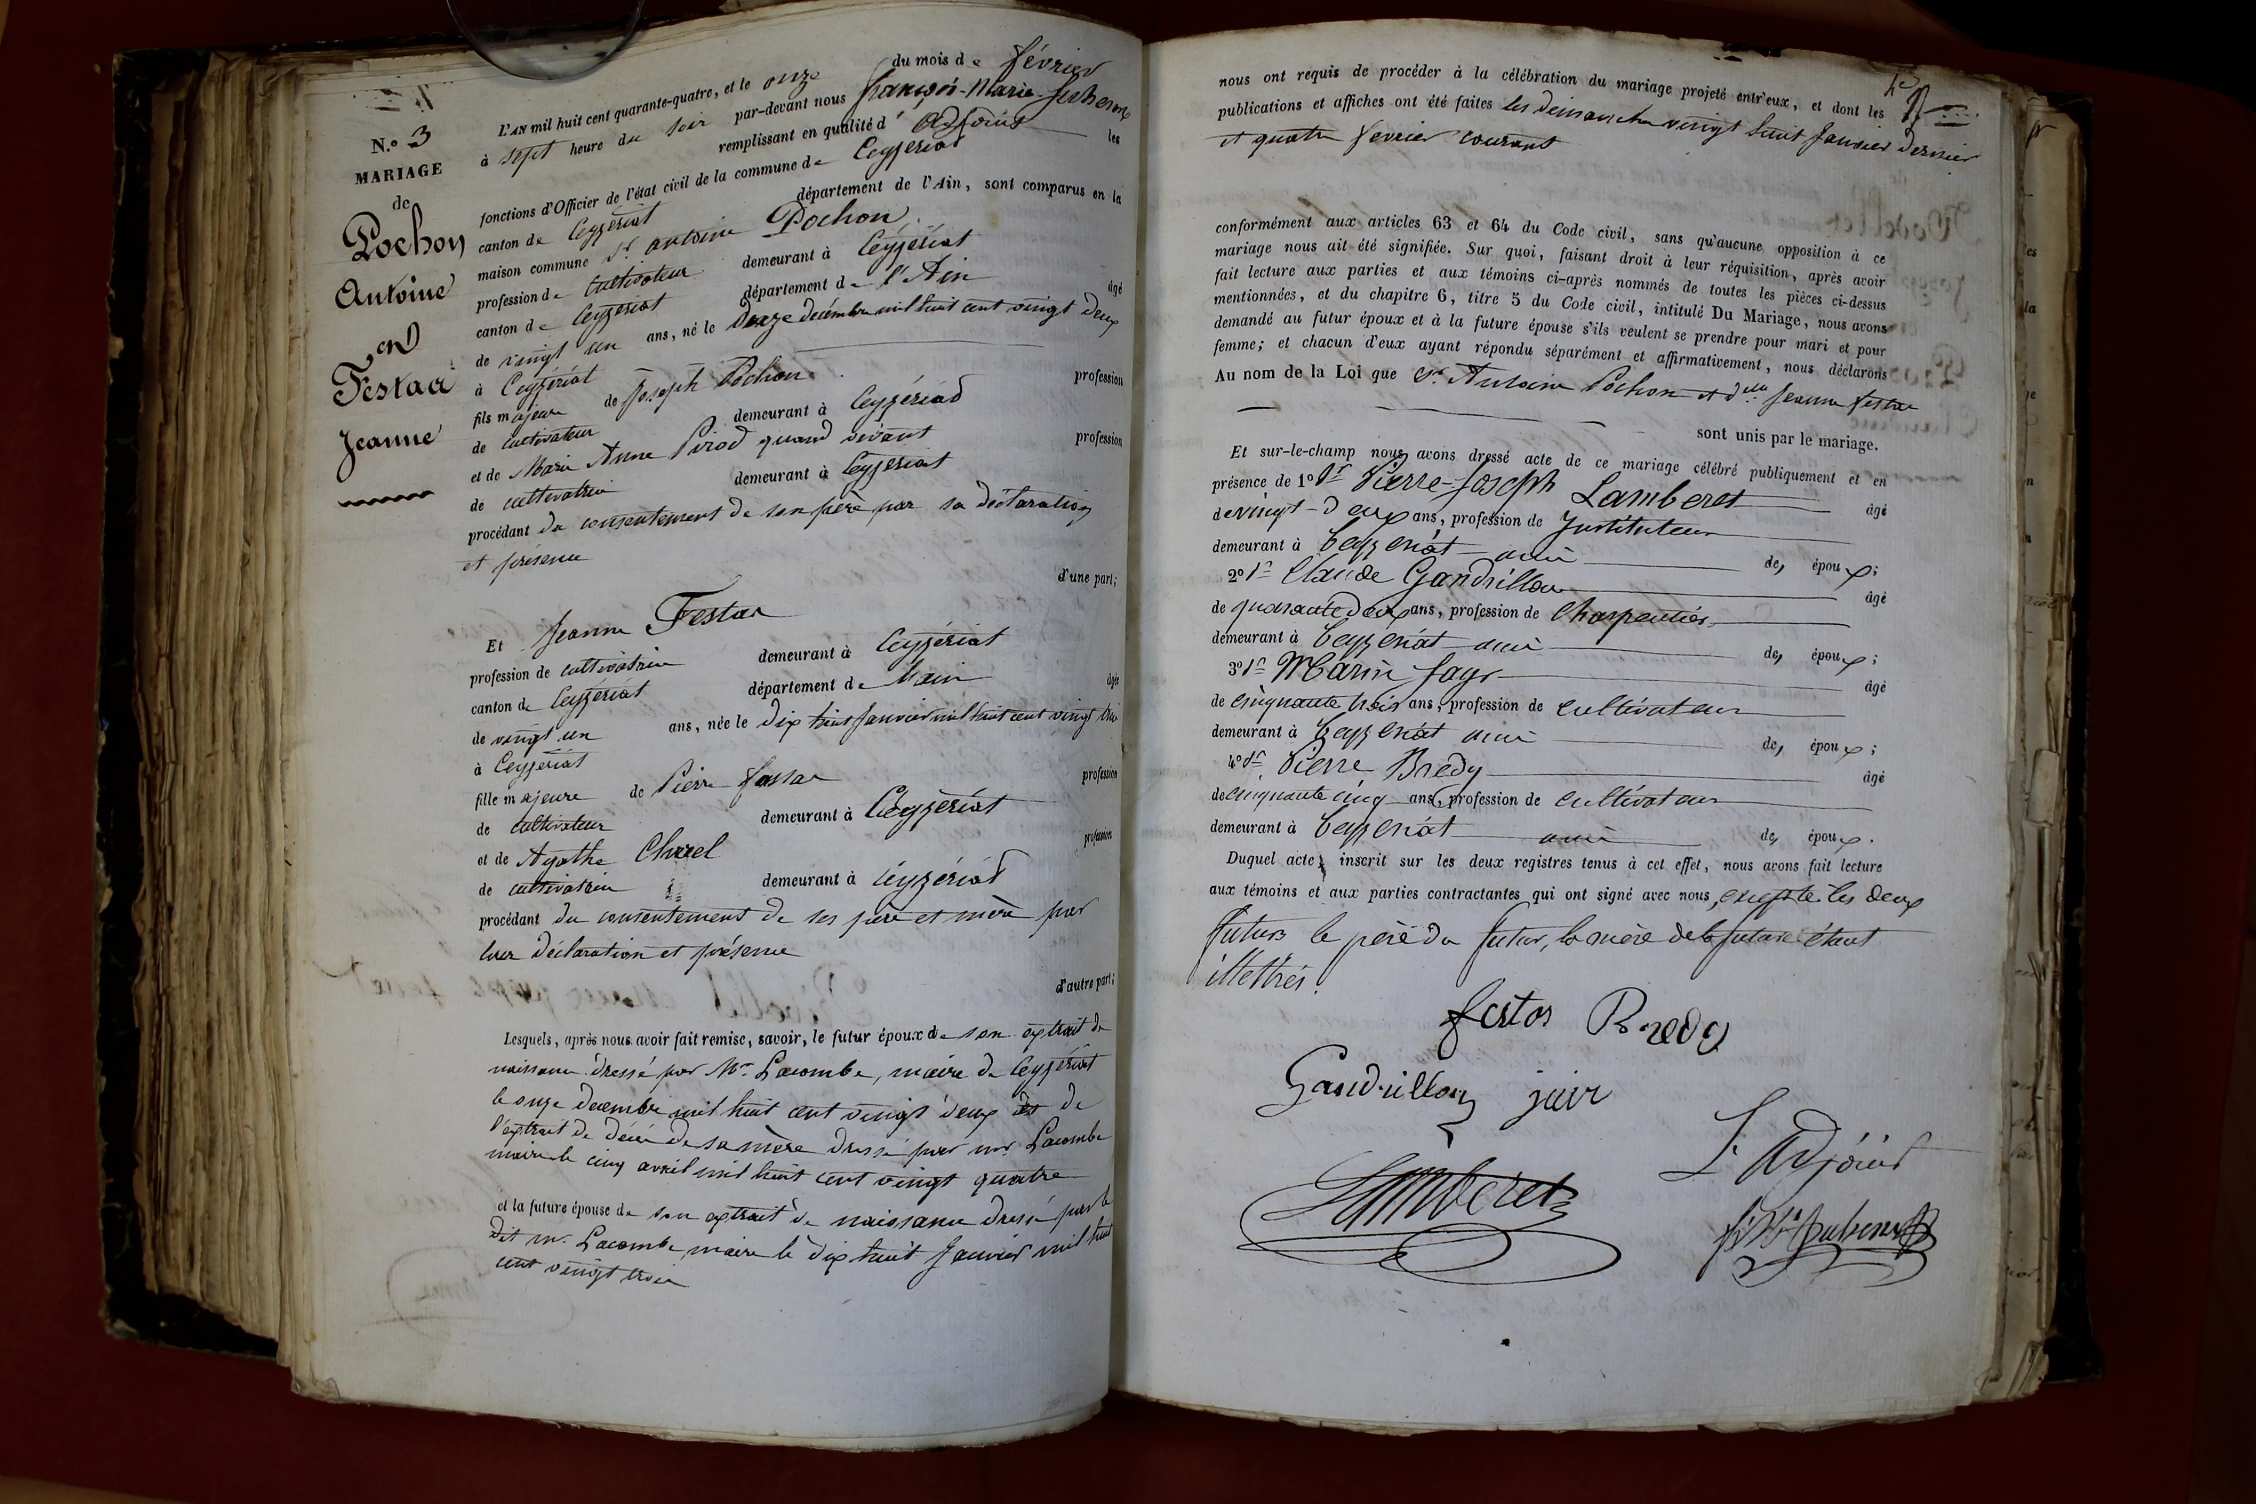 N.o 3
MARIAGE
de
Pochon
Antoine
en
Festaz
Jeanne
L'AN mil huit cent quarante-quatre, et le onze du mois de février
à sept heure du soir par-devant nous françois-Marie
remplissant en qualité d' adjoint les
fonctions d'Officier de l'état civil de la commune de Ceyzeriat
canton de Ceyzériat département de l'Ain, sont comparus en la
maison commune Sr antoine Pochon
profession de cultivateur demeurant à Ceyzériat
canton de Ceyzeriat département de l'Ain âgé
de vingt un ans, né le onze décembre mil huit cent vingt deux
à Ceyzériat
fils majeur de Joseph Pochon profession
de cultivateur demeurant à Ceyzériad
et de Marie Anne Pirod quand vivant profession
de cultivatrice demeurant à Ceyzeriat
procédant du consentement de son père par sa déclaration
et présence
d'une part;
Et Jeanne Festaz
profession de cultivatrice demeurant à Ceyzériat
canton de Ceyzériat département de l'Ain âgée
de vingt un ans, née le dix huit Janvier mil huit cent vingt trois
à Ceyzeriat
fille majeure de Pierre profession
de cultivateur demeurant à Ceyzèriat
et de Agathe profession
de cultivatrice demeurant à Ceyzériat
procédant du consentement de ses père et mère par
leur déclaration et présence
d'autre part;
Lesquels, après nous avoir fait remise, savoir, le futur époux de son extrait de
naissance dressé par Mr Lacombe, maire de Ceyzériat
le onze decembre mil huit cent vingt deux de
l'extrait de décé de sa mère dressé par mr Lacombe
maire le cinq avril mil huit cent vingt quatre
et la future épouse de son extrait de naissance dressé par le
dit mr Lacombe maire le dix huit Janvier mil huit
cent vingt trois
nous ont requis de procéder à la célébration du mariage projeté entr'eux, et dont les
publications et affiches ont été faites les dimanche vingt huit Janvier dernier
et quatre fevrier courant
conformément aux articles 63 et 64 du Code civil, sans qu'aucune opposition à ce
mariage nous ait été signifiée. Sur quoi, faisant droit à leur réquisition, après avoir
fait lecture aux parties et aux témoins ci-après nommés de toutes les pièces ci-dessus
mentionnées, et du chapitre 6, titre 5 du Code civil, intitulé Du Mariage, nous avons
demandé au futur époux et à la future épouse s'ils veulent se prendre pour mari et pour
femme; et chacun d'eux ayant répondu séparément et affirmativement, nous déclarons
Au nom de la Loi que Sr Antoine Pochon et dlle Jeanne Festaz
sont unis par le mariage.
Et sur-le-champ nous avons dressé acte de ce mariage célébré publiquement et en
présence de 1o Sr Pierre-Joseph Lamberet âgé
de vingt-deux ans, profession de Instituteur
demeurant à Ceyzeriat ami des époux;
2o Sr Claude Gandrillon âgé
de quarante deux ans, profession de Charpentier
demeurant à Ceyzeriat ami des époux;
3o Sr Marin âgé
de cinquante trois ans, profession de cultivateur
demeurant à Ceyzeriat ami des époux;
4o Sr Pierre Bredy âgé
de cinquante cinq ans, profession de cultivateur
demeurant à Ceyzeriat ami des époux.
Duquel acte, inscrit sur les deux registres tenus à cet effet, nous avons fait lecture
aux témoins et aux parties contractantes qui ont signé avec nous, excepté les deux
futurs le père du futur, la mère de la future étant
illettrés.
festas Bredy
Gandrillon
L'adjoint
Lamberet